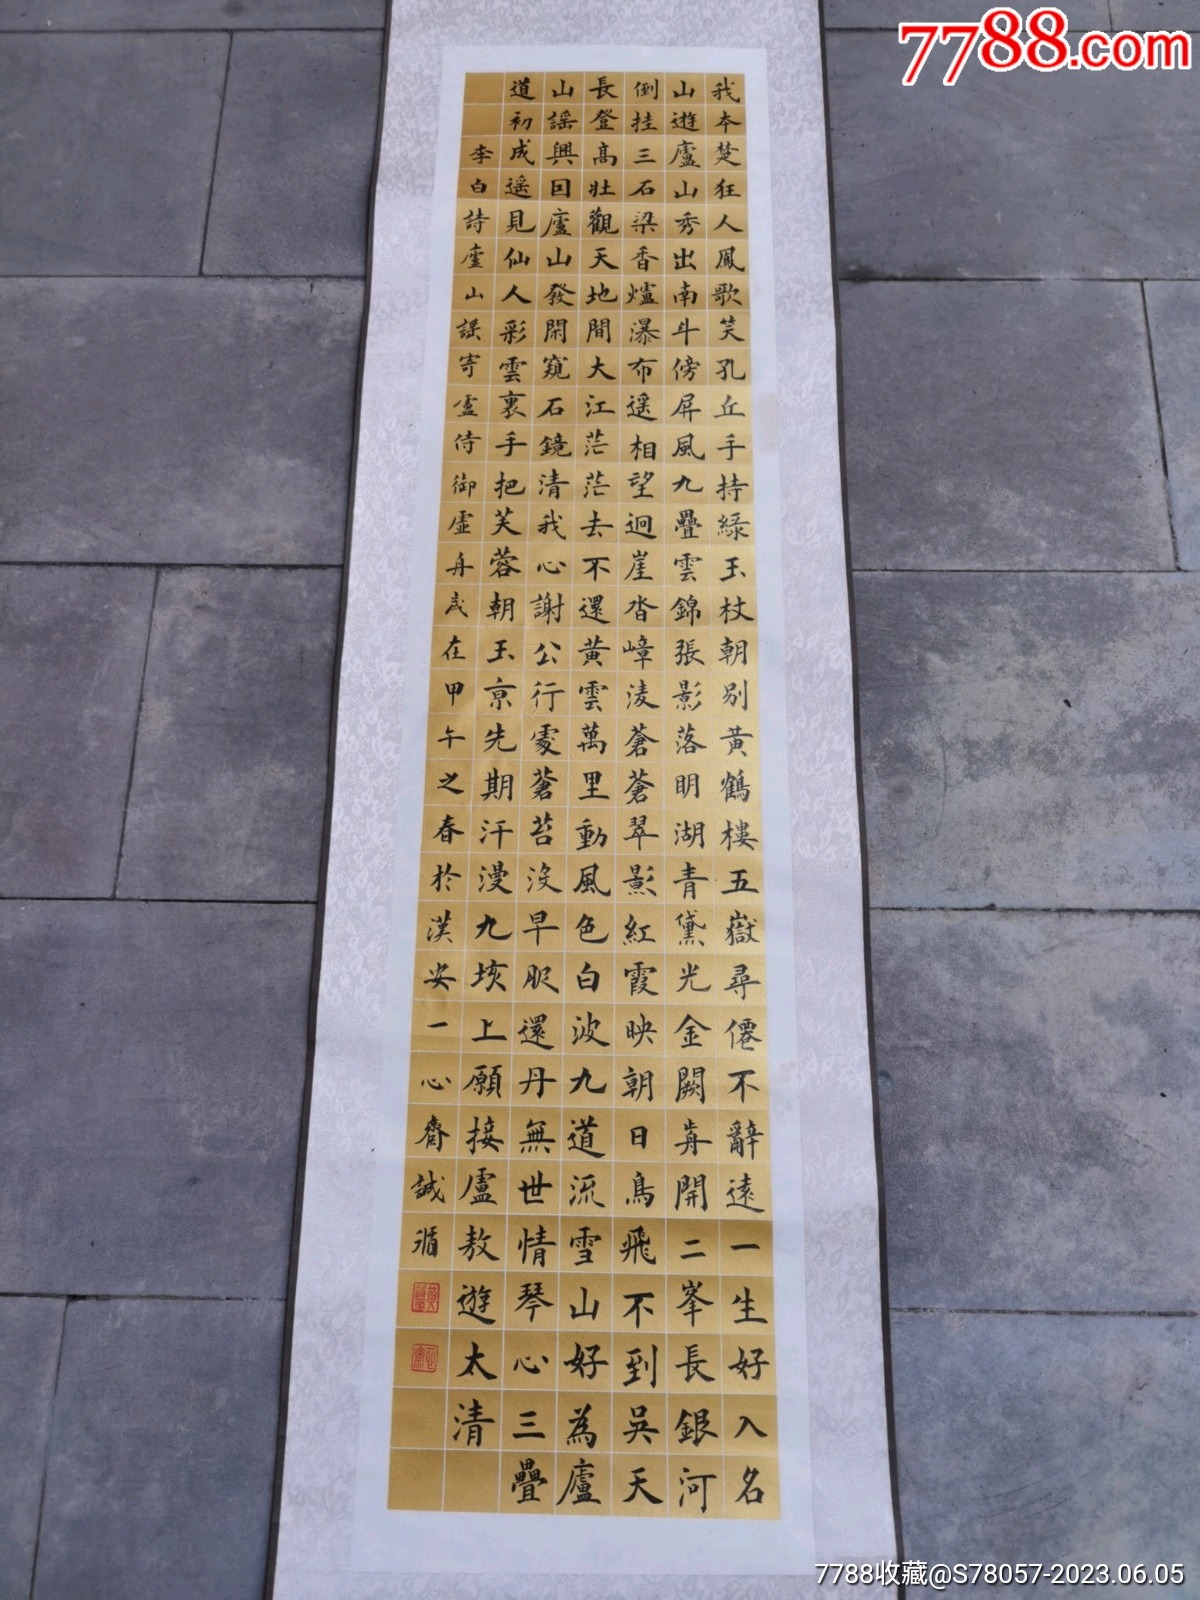 7788.com
我本楚狂人鳳歌笑孔丘手持綠玉杖朝別黃鶴樓五嶽尋僊不辭遠一生好入名
山遊廬山秀出南斗傍屏風九疊雲錦張影落明湖青黛光金闕歬開二峯長銀河
倒挂三石梁香爐瀑布遥相望迥崖沓嶂淩蒼蒼翠影紅霞映朝日鳥飛不到吳天
長登高壯觀天地間大江茫茫去不還黃雲萬里動風色白波九道流雪山好為廬
山謠興因廬山發閑窺石鏡清我心謝公行處蒼苔沒早服還丹無世情琴心三疊
道初成遥見仙人彩雲裏手把芙蓉朝玉京先期汗漫九垓上願接盧敖遊太清
李白詩廬山謠寄盧侍御虛舟歲在甲午之春於漢安一心齋誠循
7788收藏@S78057-2023.06.05